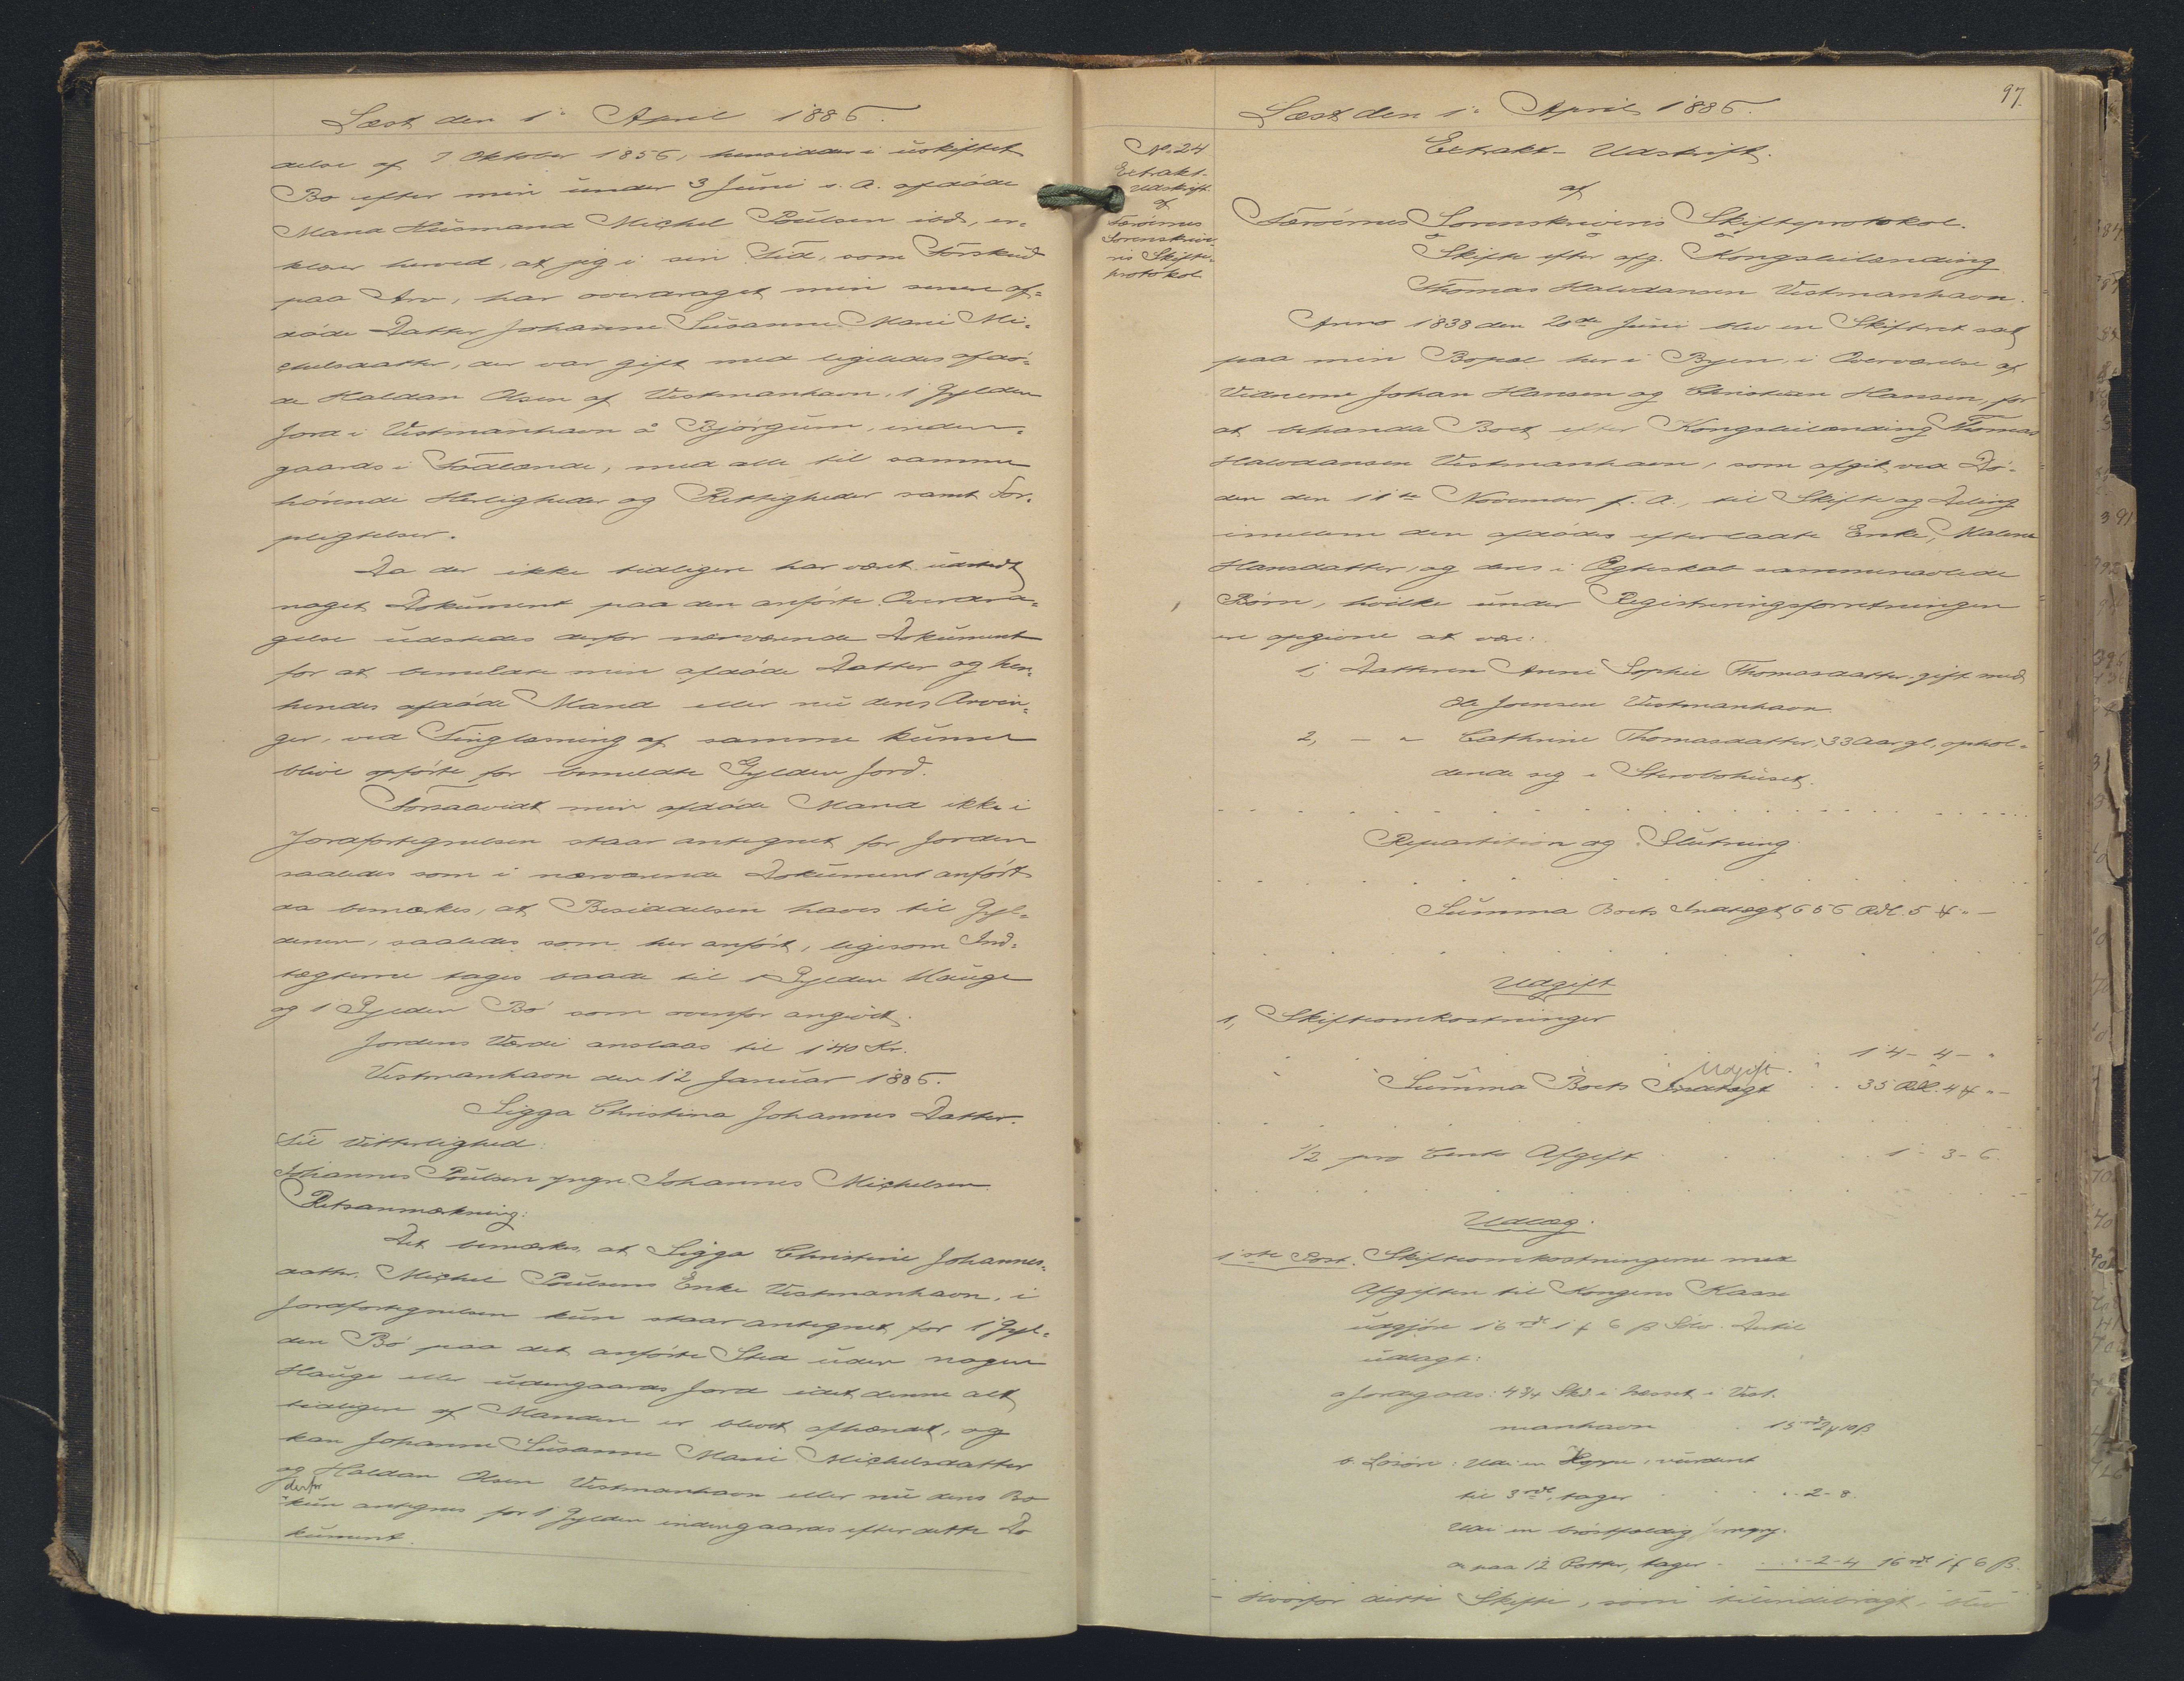 Læst den 1. April 1886.
delse af 7 Oktober 1856, hensidder i uskiftet
Bo efter min under 3 Juni s. A. afdøde
Mand Husmand Michel Poulsen ibd, er=
klær herved, at jeg i sin Tid, som Forskud
paa Arv, har overdraget min senere af=
døde Datter Johanne Susanne Marie Mi=
chelsdatter, der var gift med ligeledes afdø=
de Haldan Olsen af Vestmanhavn, 1 Gylden
Jord i Vestmanhavn å Bjørgum, inden=
gaards i Fødlande, med alle til samme
hørende Herligheder og Rettigheder samt For=
pligtelser.
Da der ikke tidligere har været udstedt
noget Dokument paa den anførte Overdra=
gelse udstedes derfor nærværende Dokument
for at bemeldte min afdøde Datter og hen=
hendes afdøde Mand eller nu deres Arvin=
ger, ved Tinglæsning af samme kunne
blive opførte for bemeldte Gylden Jord.
Forsaavidt min afdøde Mand ikke i
Jordfortegnelsen staar antegnet for Jorden
saaledes som i nærværende Dokument anført
da bemærkes, at Besiddelsen haves til Gyl=
denen, saaledes som her anført, ligesom Ind=
tægterne tages baade til 1 Gylden Hauge
og 1 Gylden Bø som ovenfor angivet.
Jordens Værdi anslaas til 140 Kr.
Vestmanhavn den 12 Januar 1886.
Sigga Christina Johannes Datter.
Til Vitterlighed:
Johannes Poulsen yngre Johannes Michelsen.
Retsanmærkning:
Det bemærkes, at Sigga Christine Johannes=
datter, Michel Poulsens Enke Vestmanhavn, i
Jordfortegnelsen kun staar antegnet for 1 Gyl=
den Bø paa det anførte Sted uden nogen
Hauge eller udengaards Jord idet denne alt
tidligere af Manden er blevet afhændet, og
kan Johanne Susanne Marie Michelsdatter
og Haldan Olsen Vestmanhavn eller nu deres Bo
derfor
kun antegnes for 1 Gylden indengaards efter dette Do
kument.
97.
Læst den 1. April 1886.
No 24
Extrakt-
Udskrift
af
Færøernes
Sorenskrive
ris Skifte=
protokol
Extrakt-Udskrift.
af
Færøernes Sorenskriveris Skifteprotokol.
Skifte efter afg. Kongsbilænding
Thomas Halvdansen Vestmanhavn.
Anno 1838 den 20de Juni blev en Skifteret sat
paa min Bopæl her i Byen, i Overværelse af
Vidnerne Johan Hansen og Christian Hansen, for
at behandle Boet efter Kongsbilænding Thomas
Halvdansen Vestmanhavn, som afgik ved Dø=
den den 11te November f. A., til Skifte og Deling
imellem den afdødes efterladte Enke, Malene
Hansdatter, og deres i Ægteskab sammenavlede
Børn, hvilke under Registreringsforretningen
ere opgivne at være:
1, Datteren Anne Sophie Thomasdatter, gift med
Ole Joensen Vestmanhavn.
2, — " Cathrine Thomasdatter, 33 Aar gl., ophol=
dende sig i Sterbohuset.
Repartition og Slutning.
Summa Boets Indtægt 656 Rdl. 5 ₰ " —
Udgift
1, Skifteomkostninger
14 - 4 - "
Udgift.
Summa Boets Indtægt 35 Rdl. 4 ₰ " —
1/2 pro Cents Afgift 1 - 3 - 6.
Udlæg.
1ste Post. Skifteomkostningerne med
Afgiften til Kongens Kasse
udgjøre 16 rd 1 ₰ 6 β Sølv. Dertil
udlagt:
a Jordegods: 4 3/4 Skd. i Vest=
manhavn 15 rd 2 ₰ 10 β
b. Løsøre: Udi en vurderet
til 3 rdl., tager " - 2 - 8.
Udi en brøstfældig
a paa 12 Potter, tager " - 2 - 4 16 rd 1 ₰ 6 β.
Hvorfor dette Skifte, som tilendebragt, blev